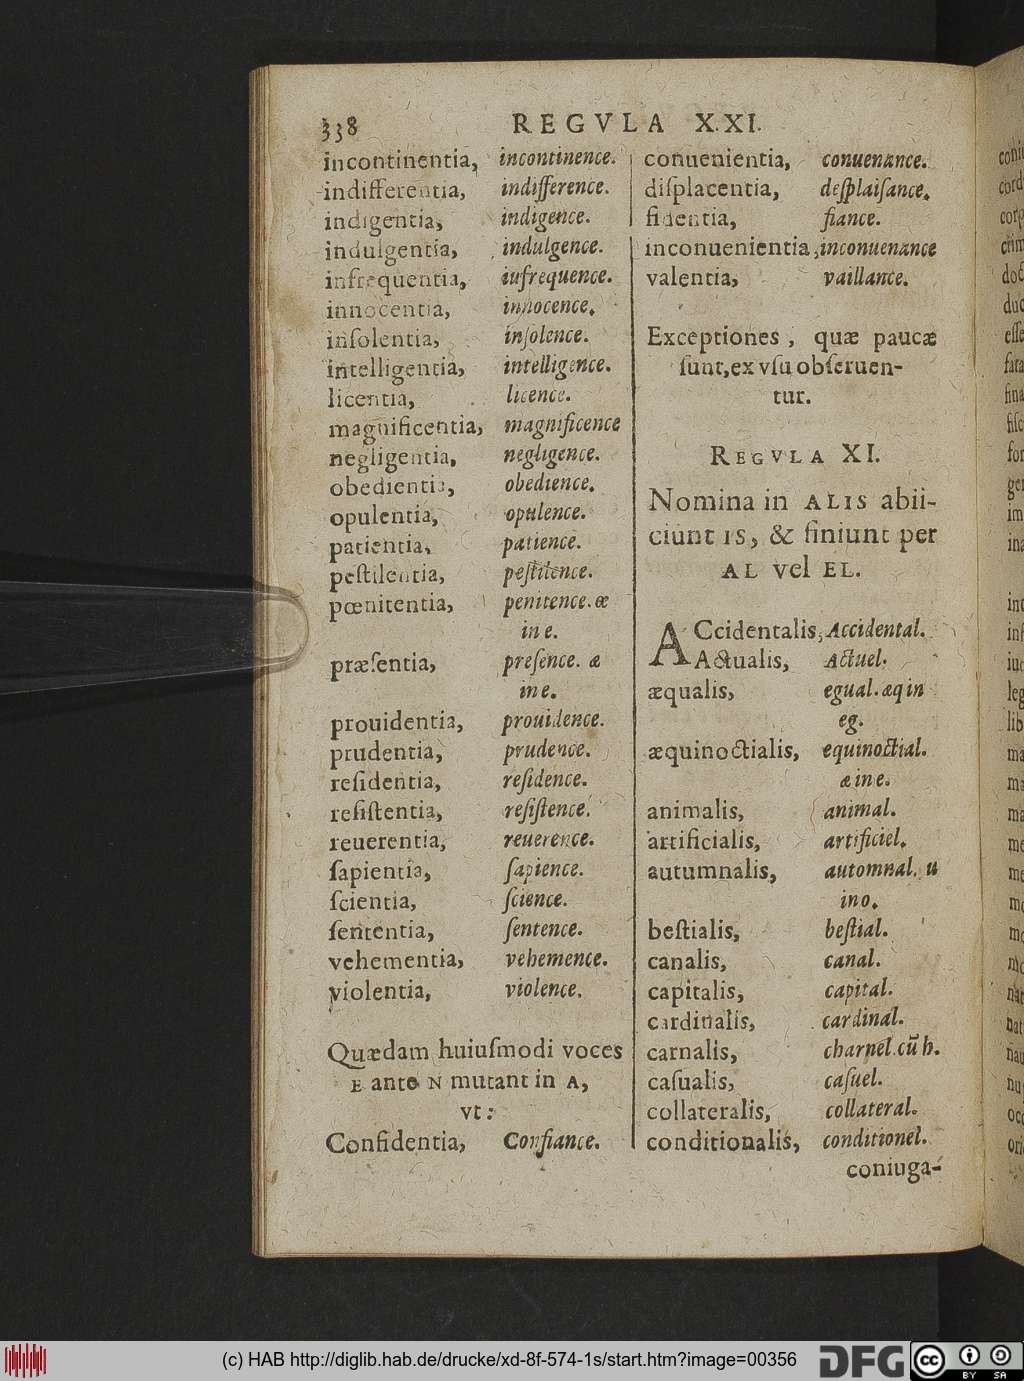 338 REGVLA XXI.
incontinentia, incontinence.
indifferentia, indifference.
indigentia, indigence.
indulgentia, indulgence.
infrequentia, iufrequence.
innocentia, innocence.
inſolentia, inſolence.
intelligentia, intelligence.
licentia, licence.
magnificentia, magnificence
negligentia, negligence.
obedientia, obedience.
opulentia, opulence.
patientia, patience.
peſtilentia, peſtilence.
pœnitentia, penitence. æ
in e.
præſentia, preſence. æ
in e.
prouidentia, prouidence.
prudentia, prudence.
reſidentia, reſidence.
reſiſtentia, reſiſtence.
reuerentia, reuerence.
ſapientia, ſapience.
ſcientia, ſcience.
ſententia, ſentence.
vehementia, vehemence.
violentia, violence.
Quædam huiuſmodi voces
E ante N mutant in A,
vt:
Confidentia, Confiance.
conuenientia, conuenance.
diſplacentia, deſplaiſance.
fidentia, fiance.
inconuenientia, inconuenance
valentia, vaillance.
Exceptiones, quæ paucæ
ſunt, ex vſu obſeruen-
tur.
REGVLA XI.
Nomina in ALIS abii-
ciunt IS, & finiunt per
AL vel EL.
ACcidentalis, Accidental.
Actualis, Actuel.
æqualis, egual. æq in
eg.
æquinoctialis, equinoctial.
æ in e.
animalis, animal.
artificialis, artificiel.
autumnalis, automnal. u
in o.
beſtialis, beſtial.
canalis, canal.
capitalis, capital.
cardinalis, cardinal.
carnalis, charnel. cū h.
caſualis, caſuel.
collateralis, collateral.
conditionalis, conditionel.
coniuga-
(c) HAB http://diglib.hab.de/drucke/xd-8f-574-1s/start.htm?image=00356
DFG
cc BY SA